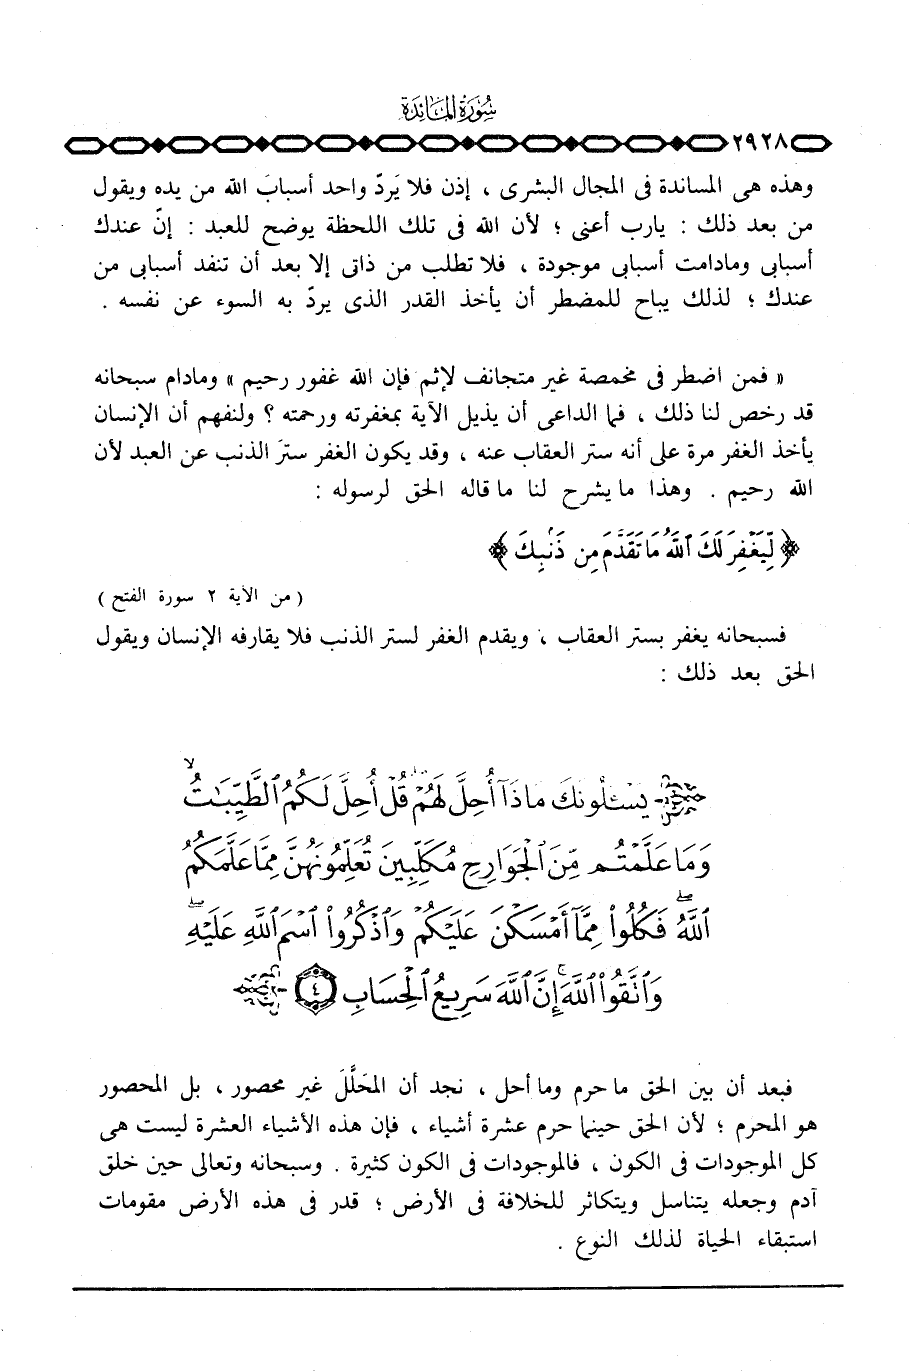 سُورَةُ المَائدَة
٢٩٢٨
وهذه هى المساندة فى المجال البشرى ، إذن فلا يَردّ واحد أسبابَ الله من يده ويقول
من بعد ذلك : يارب أعنى ؛ لأن الله فى تلك اللحظة يوضح للعبد : إنّ عندك
أسبابى ومادامت أسبابى موجودة ، فلا تطلب من ذاتى إلا بعد أن تنفد أسبابى من
عندك ؛ لذلك يباح للمضطر أن يأخذ القدر الذى يردّ به السوء عن نفسه .
« فمن اضطر فى مخمصة غير متجانف لإثم فإن الله غفور رحيم » ومادام سبحانه
قد رخص لنا ذلك ، فما الداعى أن يذيل الآية بمغفرته ورحمته ؟ ولنفهم أن الإنسان
يأخذ الغفر مرة على أنه ستر العقاب عنه ، وقد يكون الغفر سترَ الذنب عن العبد لأن
الله رحيم . وهذا ما يشرح لنا ما قاله الحق لرسوله :
﴿ لِّيَغْفِرَ لَكَ ٱللَّهُ مَا تَقَدَّمَ مِن ذَنۢبِكَ ﴾
( من الآية ٢ سورة الفتح )
فسبحانه يغفر بستر العقاب ، ويقدم الغفر لستر الذنب فلا يقارفه الإنسان ويقول
الحق بعد ذلك :
يَسْـَٔلُونَكَ مَاذَآ أُحِلَّ لَهُمْ ۖ قُلْ أُحِلَّ لَكُمُ ٱلطَّيِّبَـٰتُ ۙ
وَمَا عَلَّمْتُم مِّنَ ٱلْجَوَارِحِ مُكَلِّبِينَ تُعَلِّمُونَهُنَّ مِمَّا عَلَّمَكُمُ
ٱللَّهُ ۖ فَكُلُوا۟ مِمَّآ أَمْسَكْنَ عَلَيْكُمْ وَٱذْكُرُوا۟ ٱسْمَ ٱللَّهِ عَلَيْهِ ۖ
وَٱتَّقُوا۟ ٱللَّهَ ۚ إِنَّ ٱللَّهَ سَرِيعُ ٱلْحِسَابِ ٤
فبعد أن بين الحق ما حرم وما أحل ، نجد أن المحَلَّلَ غير محصور ، بل المحصور
هو المحرم ؛ لأن الحق حينما حرم عشرة أشياء ، فإن هذه الأشياء العشرة ليست هى
كل الموجودات فى الكون ، فالموجودات فى الكون كثيرة . وسبحانه وتعالى حين خلق
آدم وجعله يتناسل ويتكاثر للخلافة فى الأرض ؛ قدر فى هذه الأرض مقومات
استبقاء الحياة لذلك النوع .